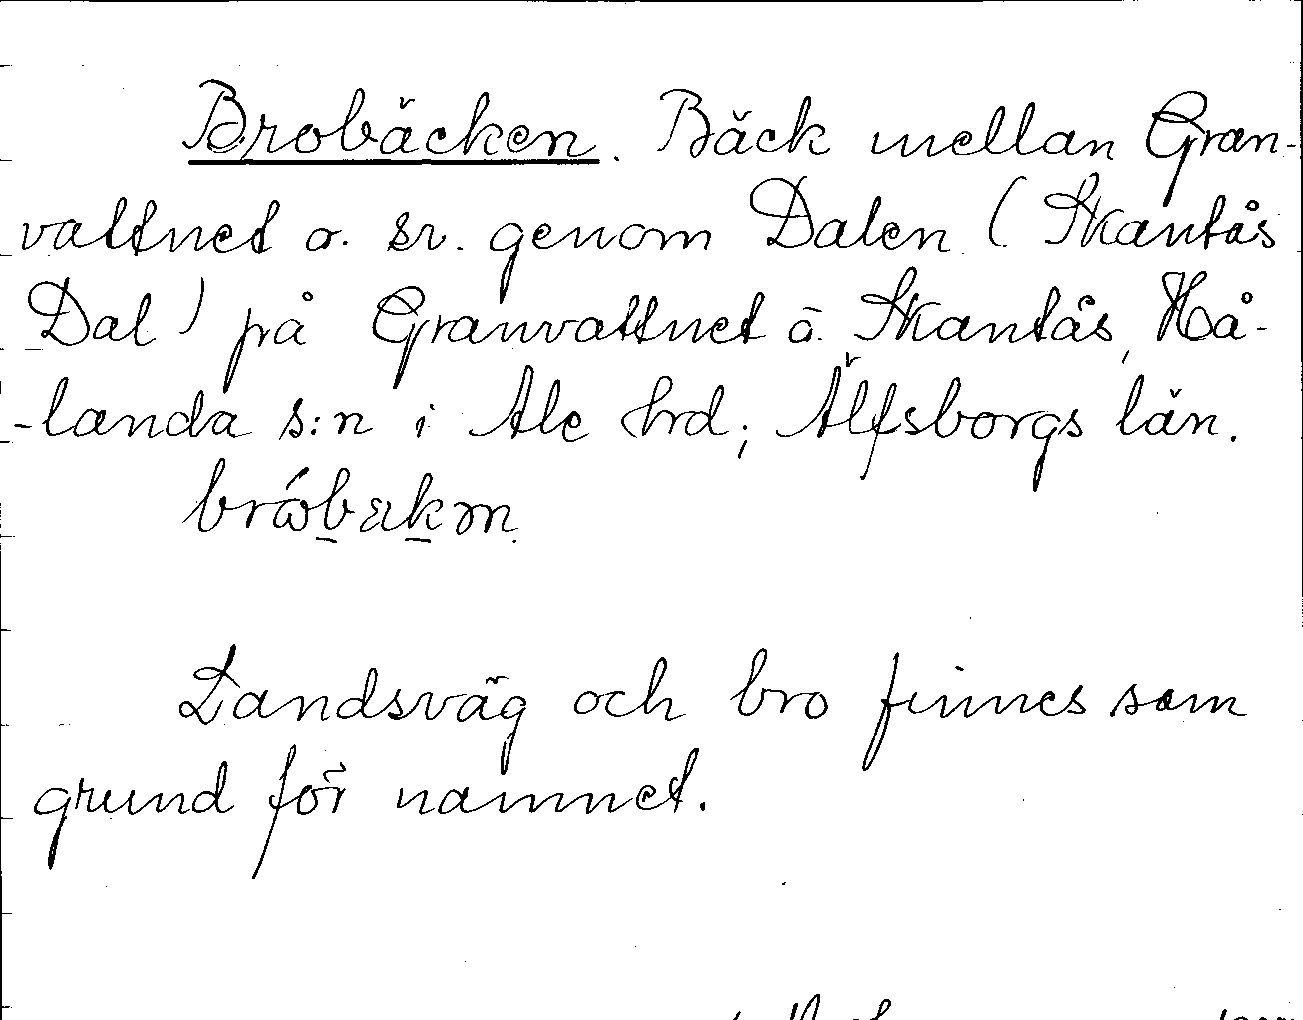 Brobäcken. Bäck mellan Gran-
vattnet o. sv. genom Dalen (Skantås
Dal) på Granvattnet å Skantås, Hå-
-landa s:n i Ale hrd; Älfsborgs län.
bróbäkɷn
Landsväg och bro finnes som
grund för namnet.